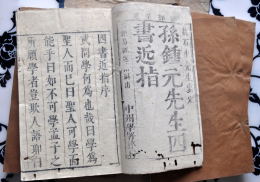 孫鍾元先生四
書近指
中州學
四書近指序
或問學何為也哉曰學為
聖人而已曰聖人可學而
能乎曰如不可學孟子之
所願學者豈欺人語